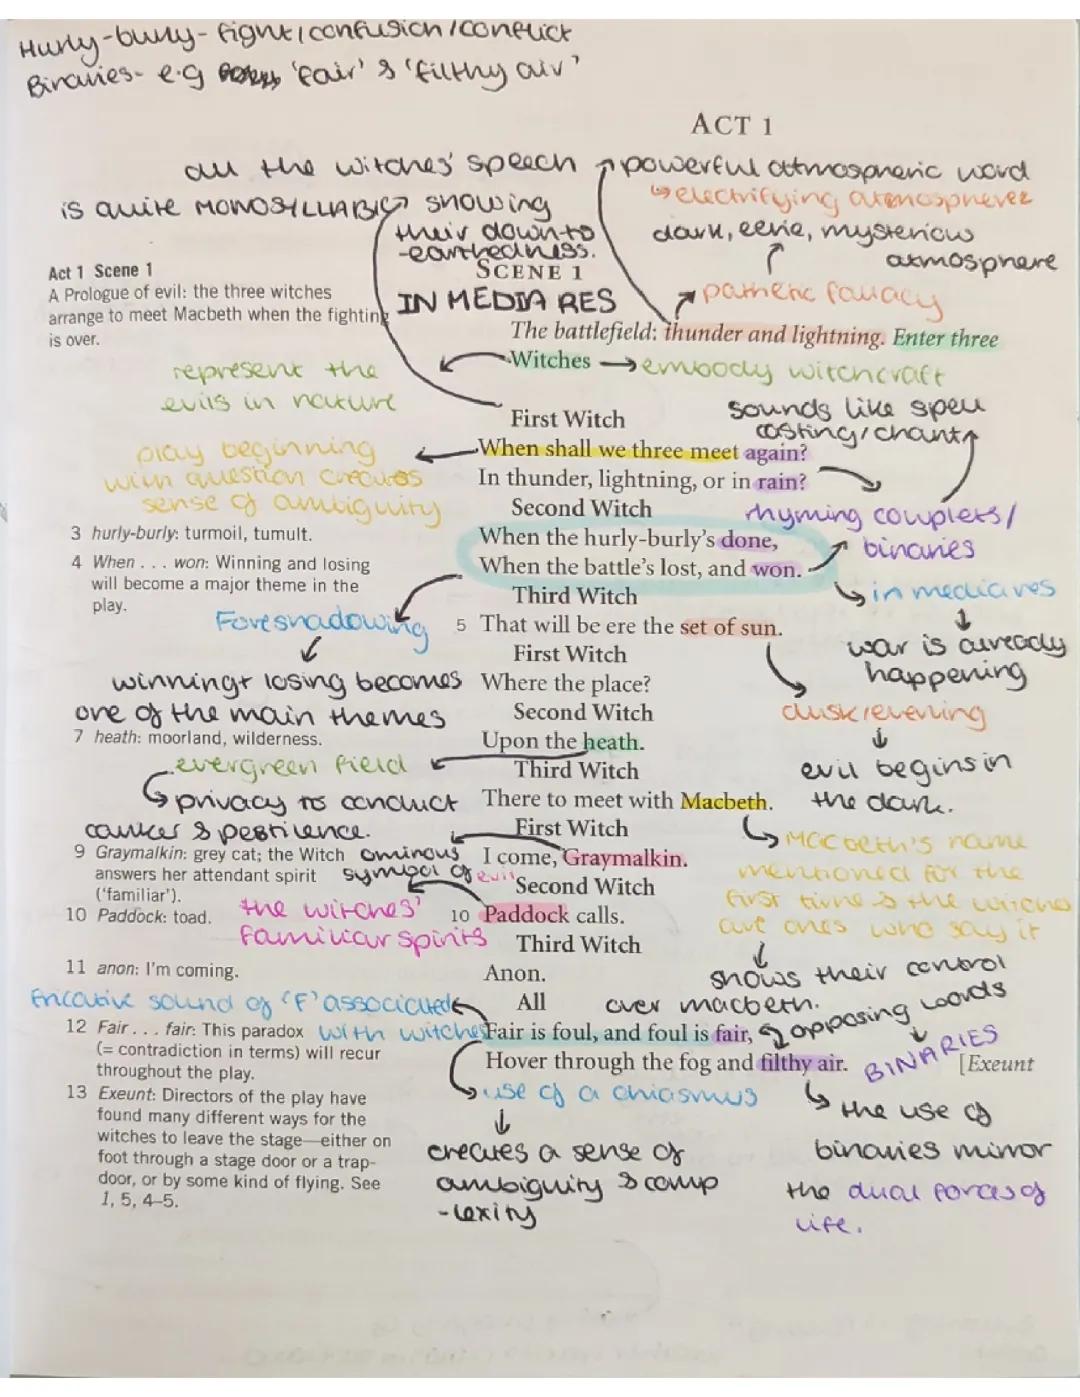 Hurly-burly- fight/confusion/conflict
Binaries- e.g 'fair' & 'filthy air'
ACT 1
all the witches' speech
is quite MONOSYLLABIC showing
their down-to
-earthedness.
powerful atmospheric word
electrifying atmosphere
dark, eerie, mysterious
atmosphere
Act 1 Scene 1
A Prologue of evil: the three witches
arrange to meet Macbeth when the fighting
is over.
SCENE 1
IN MEDIA RES
pathetic fallacy
The battlefield: thunder and lightning. Enter three
Witches
embody witchcraft
represent the
evils in nature
sounds like spell
casting/chant
First Witch
When shall we three meet again?
In thunder, lightning, or in rain?
play beginning
with question creates
sense of ambiguity
Second Witch
rhyming couplets/
binaries
3 hurly-burly: turmoil, tumult.
When the hurly-burly's done,
4 When . . . won: Winning and losing
will become a major theme in the
play.
When the battle's lost, and won.
in media res
war is already
happening
Third Witch
Foreshadowing
winning+ losing becomes
one of the main themes
5 That will be ere the set of sun.
dusk/evening
evil begins in
the dark.
First Witch
Where the place?
Second Witch
7 heath: moorland, wilderness.
Upon the heath.
evergreen field
privacy to conduct
canker & pestilence.
Third Witch
There to meet with Macbeth.
Macbeth's name
mentioned for the
first time & the witches
are ones who say it
shows their control
over macbeth.
First Witch
9 Graymalkin: grey cat; the Witch
answers her attendant spirit
('familiar').
ominous
symbol of evil
I come, Graymalkin.
Second Witch
10 Paddock: toad.
the witches'
familiar spirits
10 Paddock calls.
Third Witch
11 anon: I'm coming.
Anon.
All
fricative sound of 'F' associated
with witches
12 Fair . . . fair: This paradox
(= contradiction in terms) will recur
throughout the play.
Fair is foul, and foul is fair,
opposing words
BINARIES
Hover through the fog and filthy air.
[Exeunt
13 Exeunt: Directors of the play have
found many different ways for the
witches to leave the stage—either on
foot through a stage door or a trap-
door, or by some kind of flying. See
1, 5, 4–5.
use of a chiasmus
creates a sense of
ambiguity & comp
-lexity
the use of
binaries mirror
the dual forces of
life.